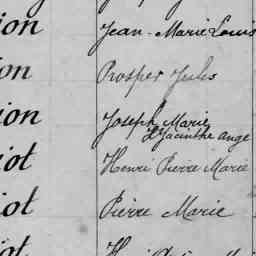 ion Jean-Marie Louis
ion Prosper Jules
ion Joseph Marie
Hyacinthe ange
iot Henri Pierre Marie
iot Pierre Marie
iot